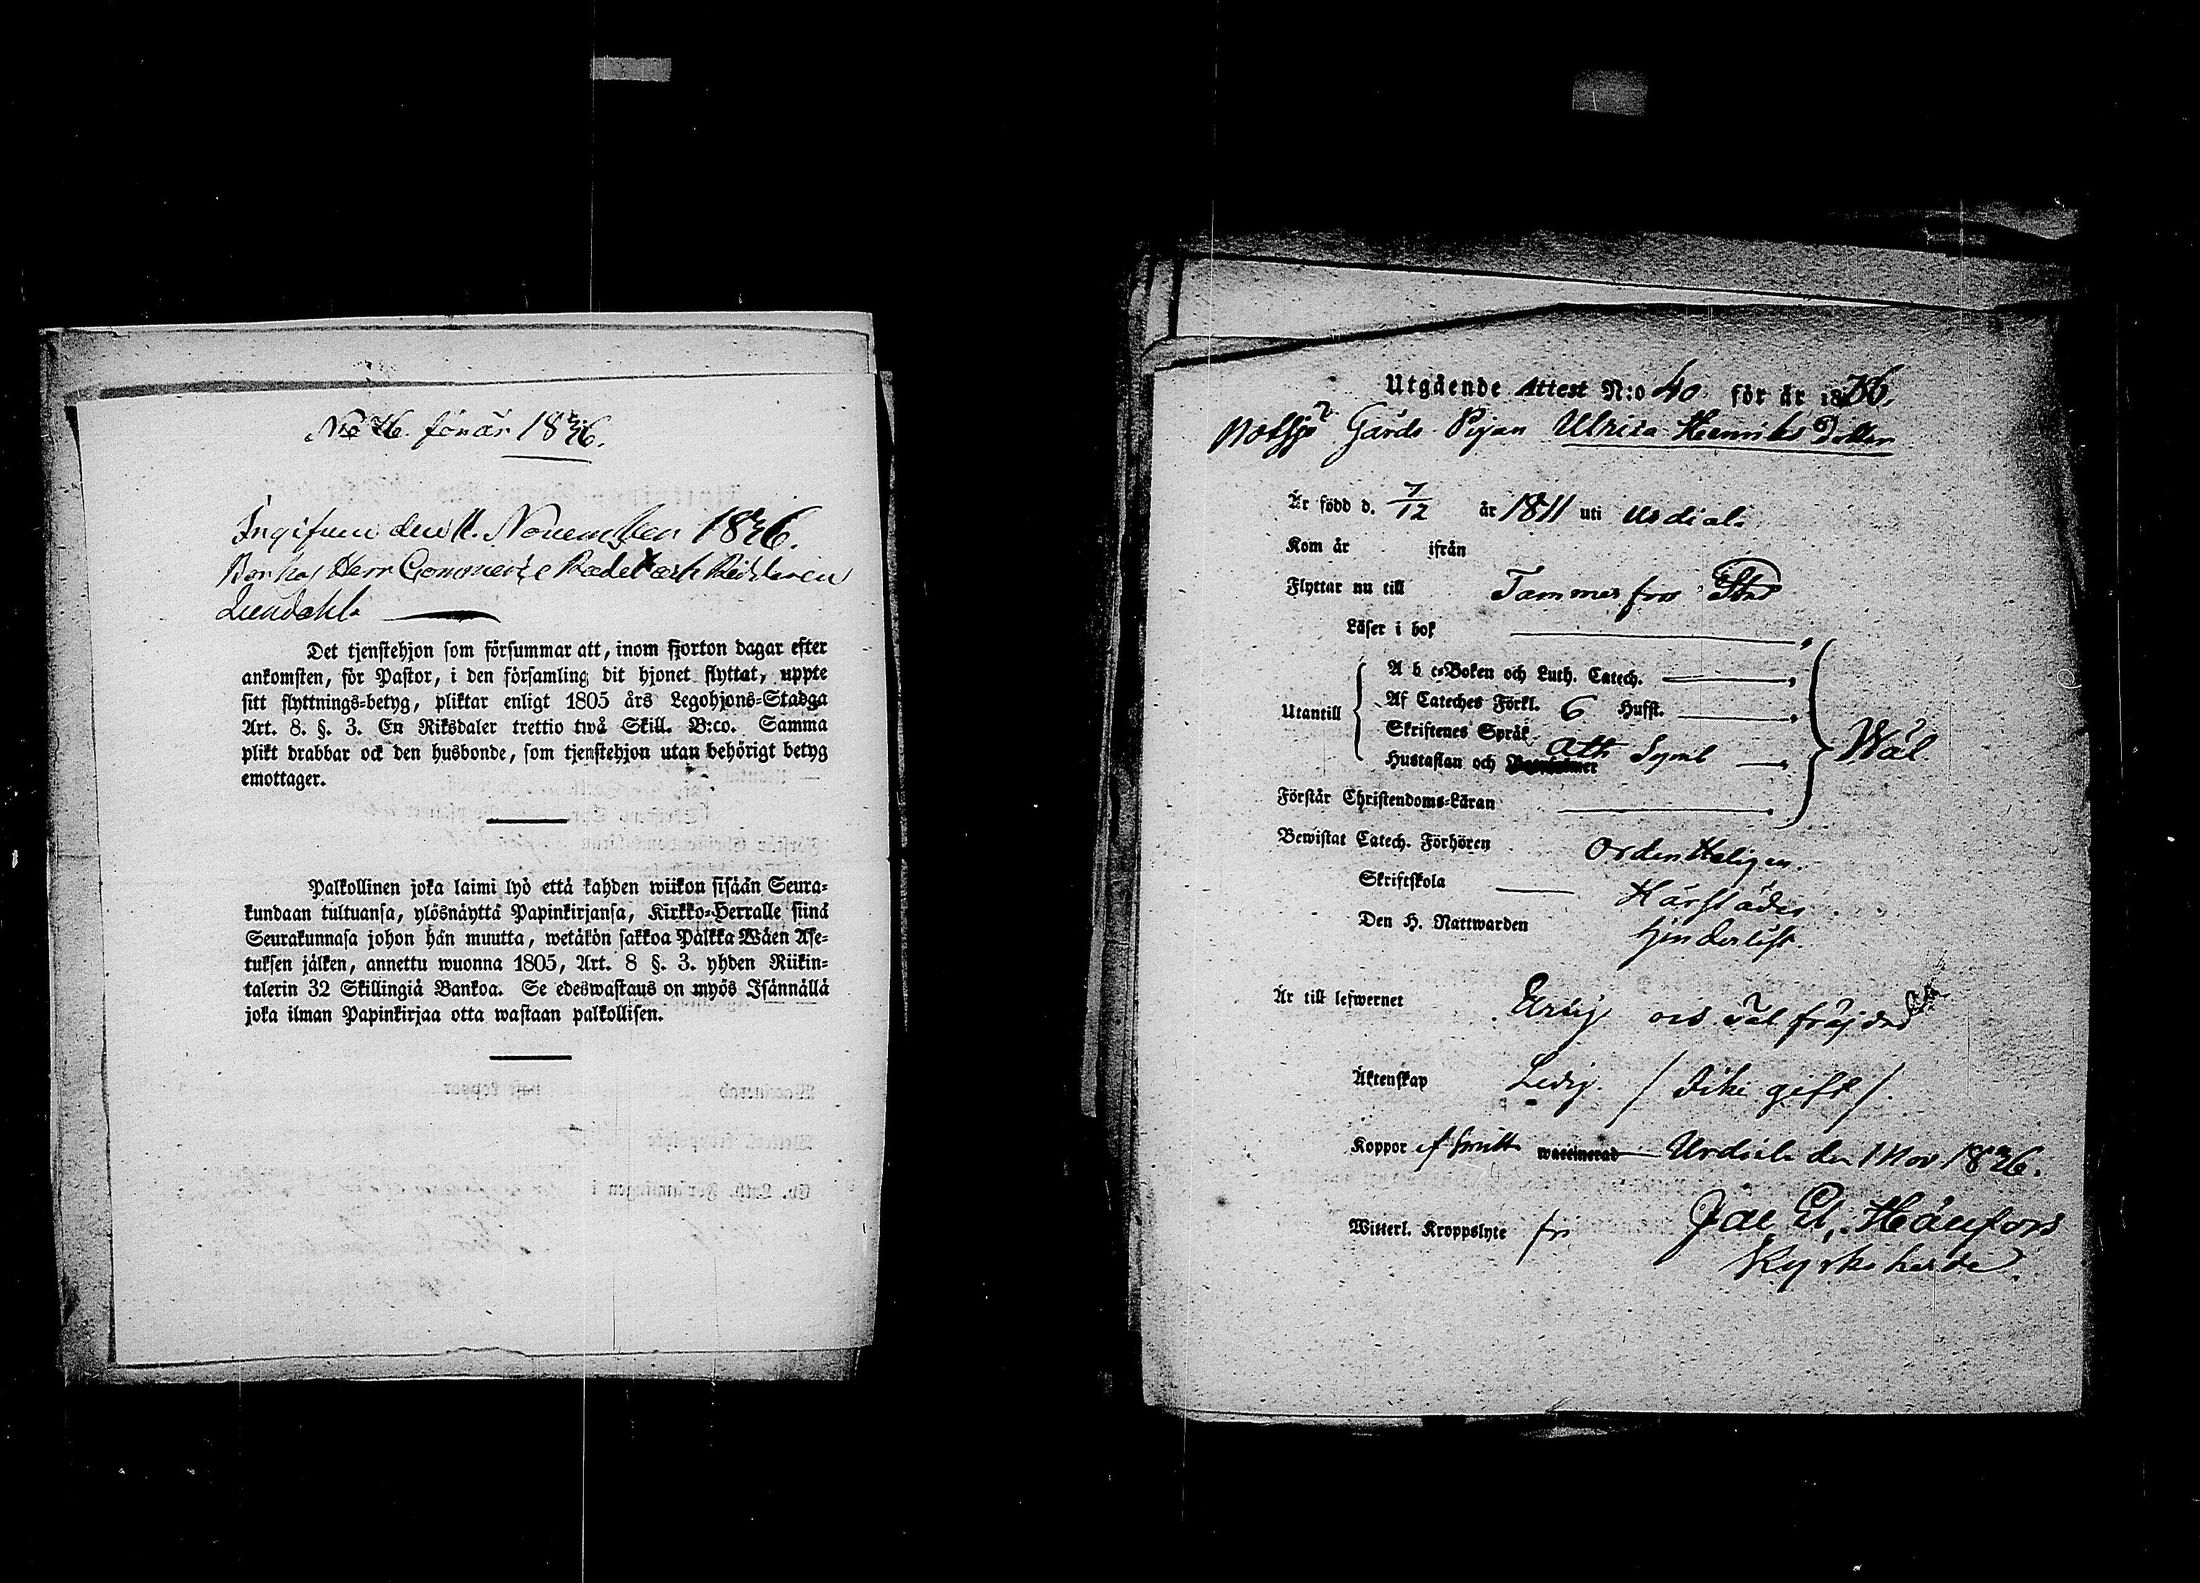 No 76. för år 1836.
Ingifven den 11. November 1836.
Bor hos Herr Commerce Rådet och Riddaren
Lundahl.
Det tjenstehjon som försummar att, inom fjorton dagar efter
ankomsten, för Pastor, i den församling dit hjonet flyttat, uppte
sitt flyttnings=betyg, pliktar enligt 1805 års Legohjons=Stadga
Art. 8. §. 3. En Riksdaler trettio twå Skill. B:co. Samma
plikt drabbar ock den husbonde, som tjenstehjon utan behörigt betyg
emottager.
Palkollinen joka laimi lyö että kahden wiikon sisään Seura=
kundaan tultuansa, ylösnäyttä Papinkirjansa, Kirkko=Herralle siinä
Seurakunnasa johon hän muutta, wetäkön sakkoa Palkka Wäen Ase=
tuksen jälken, annettu wuonna 1805, Art. 8 §. 3. yhden Riikin=
talerin 32 Skillingiä Bankoa. Se edeswastaus on myös Isännällä
joka ilman Papinkirjaa otta wastaan palkollisen.
Utgående Attest N:o 40 för år 1836.
Gårds Pigan Ulrica Henriks Dotter
Är född d. 7/12 år 1811 uti Urdiala
Kom år ifrån
Flyttar nu till Tammerfors Stad
Läser i bok
A b c=Boken och Luth. Catech.
Utantill Af Cateches Förkl. 6 Hufst.
Skriftenes Språk
Hustaflan och Ath Symb
Wäl.
Förstår Christendoms=Läran
Bewistat Catech. Förhören Ordenteligen.
Skriftskola Härstädes
Den H. Nattwarden
Är till lefwernet Ärlig och wäl fräjdad
Äktenskap Ledig. / Icke gift /.
Koppor waccinerad Urdiala den 1 Nov 1836.
Witterl. Kroppslyte fri
Kyrkoherde.